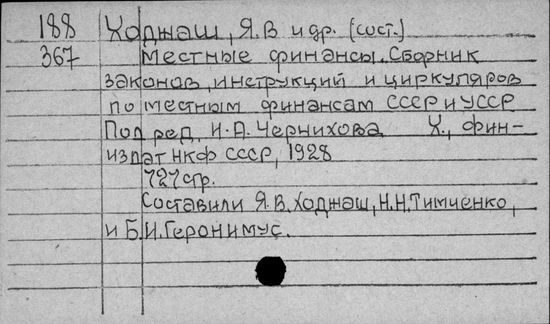 188 Ходнаш, Я.В и др. (сост.)
367 Местные финансы. Сборник
законов, инструкций и циркуляров
по местным финансам СССР и УССР
Под ред. И.А. Чернихова Х., Фин-
издат НКФ СССР, 1928
727 стр.
Составили Я.В. Ходнаш, Н.Н. Тимченко,
и Б.И. Геронимус.